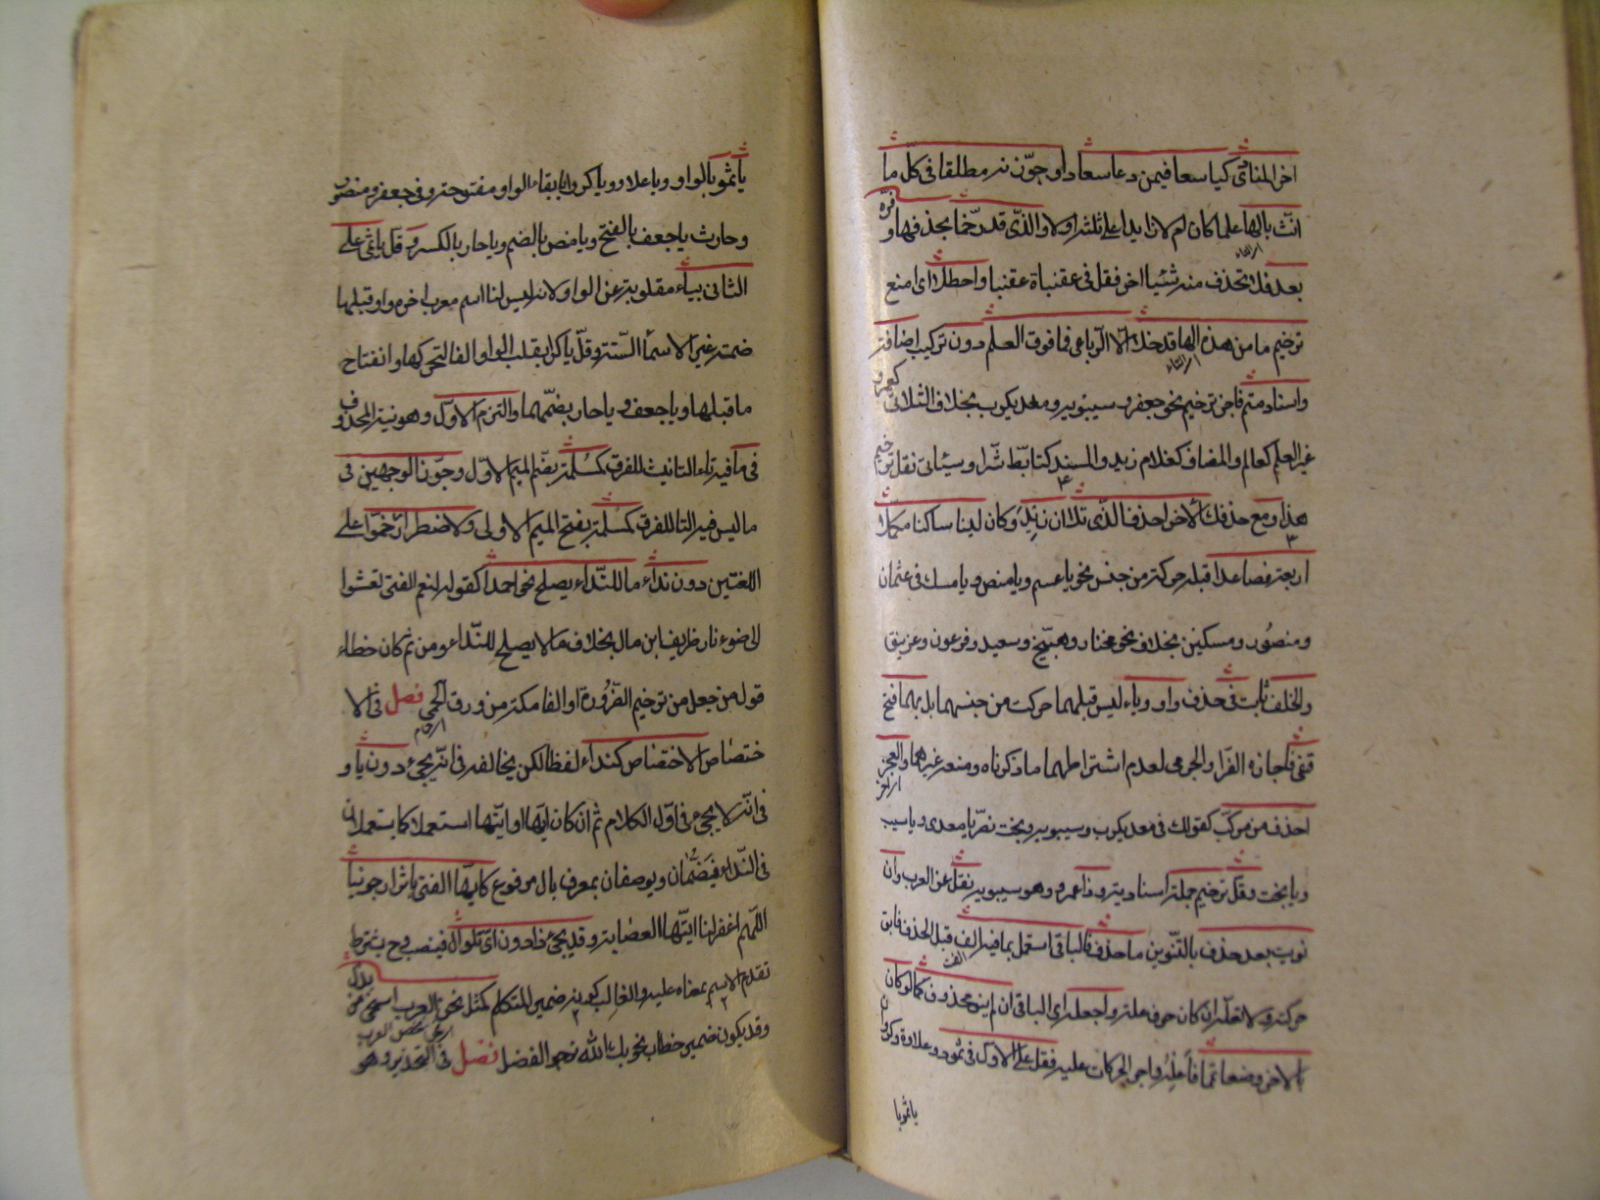 اخر المنادى كيا سعا فيمن دعا سعادا وجوّزنه مطلقا فى كلّ ما
انث بالها علما كان ام لا زايدا على ثلثة او لا والذى قد رخّما بحذفها وفره
بعد فلا تحذف منه شيئا اخر فقل فى عقنباة يا عقنبا واحظلا اى امنع
ترخيم ما من هذه الها قد خلا الا الرباعى فما فوق العلم دون تركيب اضافة
واسناد متم فاجز ترخيم نحو جعفر وسيبويه ومعديكرب بخلاف الثلاثى كعمرو
غير العلم كعالم والمضاف كغلام زيد والمسند كتابّط شرّا وسيئاتى نقل ترخيم
هذا ومع حذفك الاخر احذف الذى تلا ان زيد وكان لينا ساكنا مكمّلا
اربعة فصاعدا قبله حركة من جنسه نحو يا عثم ويا منص ويا مسك فى عثمان
ومنصور ومسكين بخلاف نحو مختار وهبيّخ وسعيد وفرعون وغرنيق
والخلف ثابت فى حذف واو وياء ليس قبلهما حركة من جنسهما بل بهما فتح
قفى فاجازه الفرّا والجرمى لعدم اشتراطهما ما ذكرناه ومنعه غيرهما والعجز
احذف من مركّب كقولك فى معديكرب وسيبويه وبخت نصّر يا معدى ويا سيب
ويا بخت وقلّ ترخيم جملة اسنادية وذا عمرو وهو سيبويه نقل عن العرب وان
نويت بعد حذف بالتّنوين ما حذف فالباقى استعمل بما فيه الف قبل الحذف فابق
حركته ولا تعلّه ان كان حرف علة واجعله اى الباقى ان لم ينو محذوف كما لو كان
بالاخر وضعا تمما فاعلّه واجر الحركات عليه فقل على الاوّل فى ثمود وعلاوة وكروان
يا ثمو با
يا ثمو بالواو ويا علاو ويا كرو بابقاء الواو مفتوحة وفى جعفر ومنصور
وحارث يا جعف بالفتح ويا منص بالضم ويا حار بالكسر وقل يا ثمى على
الثانى بياء مقلوبة عن الواو لانه ليس لنا اسم معرب اخره واو قبلها
ضمة غير الاسماء الستة وقل يا كرا بقلب الواو الفا لتحركها وانفتاح
ما قبلها ويا جعف ويا حار بضمّهما والتزم الاوّل وهو نية المحذوف
فى ما فيه تاء التانيث للفرق كمسلمة بضم الميم الاوّل وجوّز الوجهين فى
ما ليس فيه التا للفرق كمسلمة بفتح الميم الاولى ولاضطرار رخموا على
اللغتين دون نداء ما للنّداء يصلح نحو احمدا كقوله لنعم الفتى تعشوا
الى ضوء ناره طريف ابن مال بخلاف ما لا يصلح للنّداء ومن ثم كان خطاء
قول من جعل من ترخيم الضّرورة او الفا مكة من ورق الحمى فصل فى الا
ختصاص الاختصاص كنداء لفظا لكن يخالفه فى انّه يجىء دون يا و
فى انّه لا يجىء فى اوّل الكلام ثم ان كان ايّها او ايّتها استعملا كما يستعملان
فى النّداء فيضمّان ويوصفان بمعرف بال مرفوع كايّها الفتى باثر ارجونيا
اللّهم اغفر لنا ايّتها العصابة وقد يجىء ذا دون اى تلو ال فينصب وح يشترط
تقدم الاسم بمعناه عليه والغالب كونه ضمير المتكلم كمثل نحن العرب اسخى من بذل
وقد يكون ضمير خطاب نحو بك الله نرجو الفضل فصل فى التحذير وهو